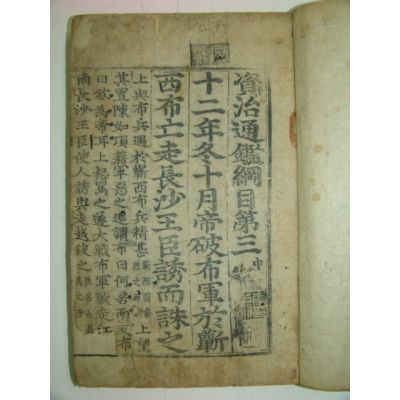 資治通鑑綱目第三中
十二年冬十月帝破布軍於蘄
西布亡走長沙王臣誘而誅之
上與布兵遇於蘄西布兵精甚 上望
其置陳如項籍軍惡之遙謂布曰何苦而反布
曰欲為帝耳上怒罵之遂大戰布軍敗走江
南長沙王臣使人誘與走越殺之